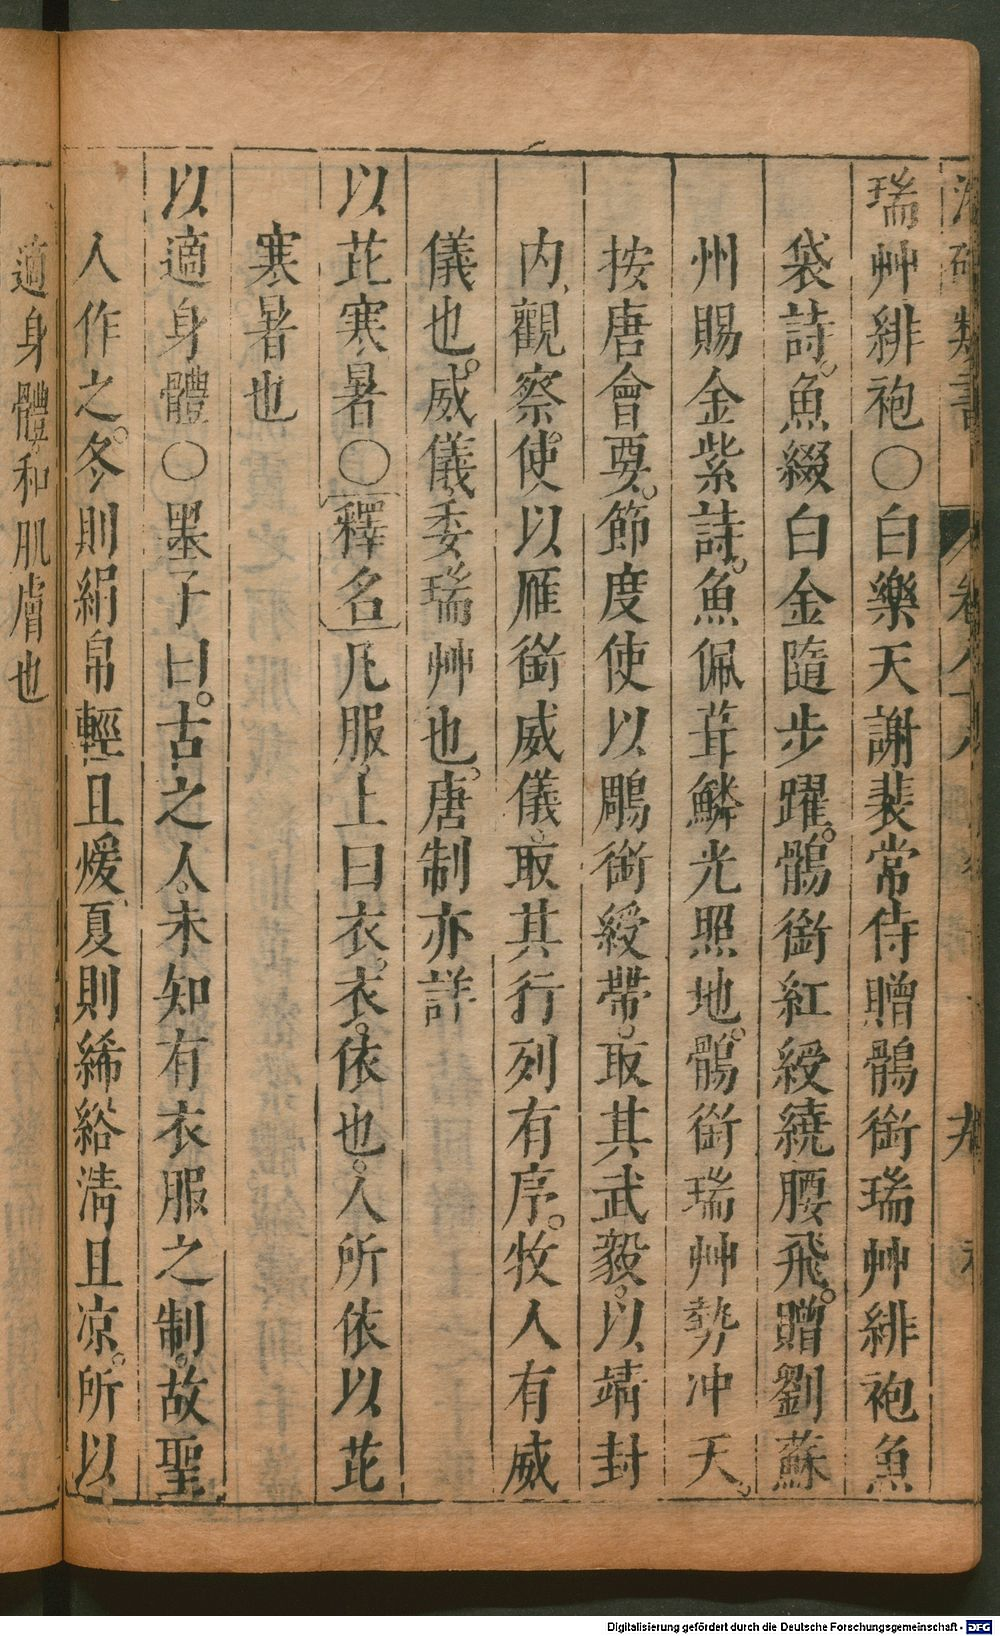 類書 卷八十八
瑞艸緋袍○白樂天謝裴常侍贈鶻銜瑞艸緋袍魚
袋詩。魚綴白金隨步躍。鶻銜紅綬繞腰飛。贈劉蘇
州賜金紫詩。魚佩茸鱗光照地。鶻銜瑞艸勢冲天。
按唐會要。節度使以鵰銜綬帶。取其武毅。以靖封
内。觀察使以雁銜威儀。取其行列有序。牧人有威
儀也。威儀。委瑞艸也。唐制亦詳
以芘寒暑○釋名凡服上曰衣。衣。依也。人所依以芘
寒暑也
以適身體○墨子曰。古之人。未知有衣服之制。故聖
人作之。冬則絹帛輕且煖。夏則絺綌清且凉。所以
適身體。和肌膚也
Digitalisierung gefördert durch die Deutsche Forschungsgemeinschaft - DFG